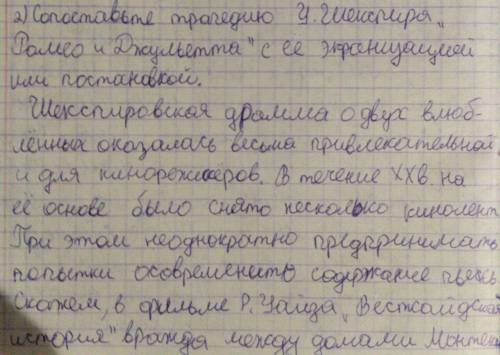 2) Сопоставьте трагедию У. Шекспира „
Ромео и Джульетта" с её экранизацией
или постановкой.
Шекспировская драмма о двух влюб-
лённых оказалась весьма привлекательной
и для кинорежисёров. В течение XX в. на
её основе было снято несколько кинолент
При этом неоднократно предпринимать
попытки осовременить содержание пьесы
Скажем, в фильме Р. Уайза „Вестсайдская
история" вражда между домами Монтек